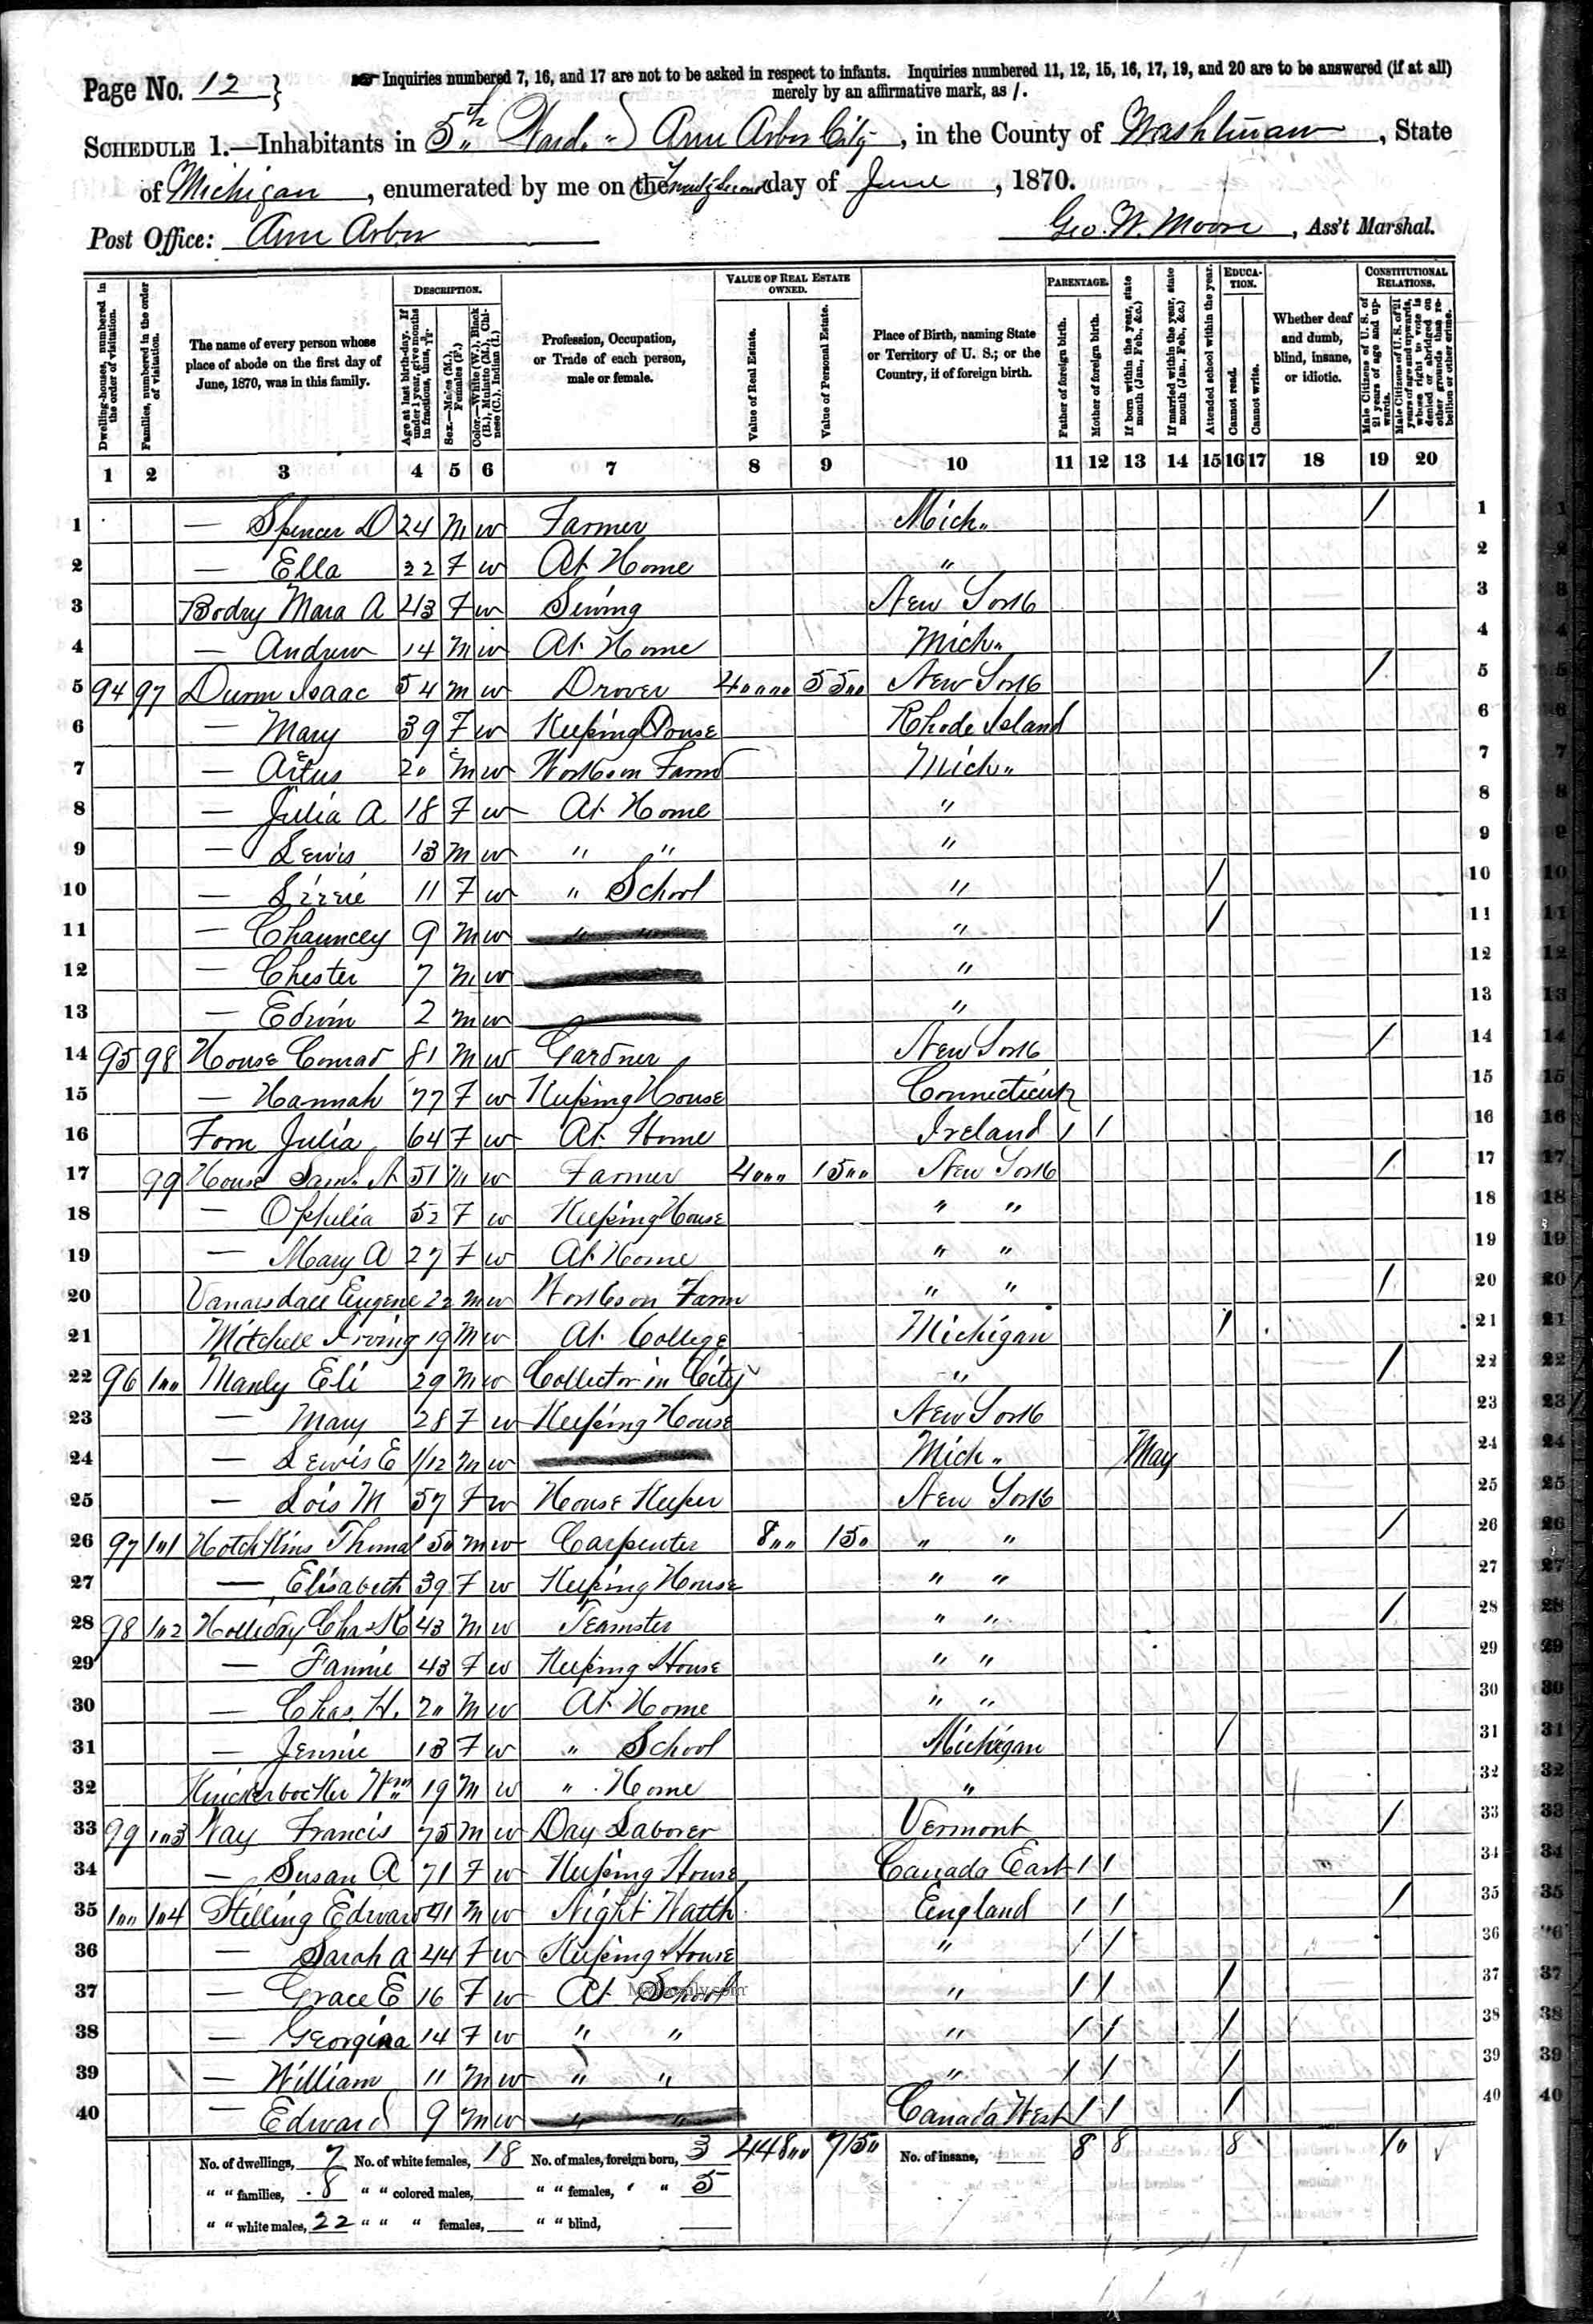 Page No. 12 } Inquiries numbered 7, 16, and 17 are not to be asked in respect to infants. Inquiries numbered 11, 12, 15, 16, 17, 19, and 20 are to be answered (if at all)
merely by an affirmative mark, as /.
SCHEDULE 1.—Inhabitants in 5th Ward. Ann Arbor City, in the County of Washtenaw, State
of Michigan, enumerated by me on the Twenty Second day of June, 1870.
Post Office: Ann Arbor Geo. W. Moore, Ass't Marshal.
Dwelling-houses, numbered in the order of visitation.
Families, numbered in the order of visitation.
The name of every person whose place of abode on the first day of June, 1870, was in this family.
DESCRIPTION.
Age at last birth-day. If under 1 year, give months in fractions, thus, 3/12
Sex.—Males (M.), Females (F.)
Color.—White (W.), Black (B.), Mulatto (M.), Chinese (C.), Indian (I.)
Profession, Occupation, or Trade of each person, male or female.
VALUE OF REAL ESTATE OWNED.
Value of Real Estate.
Value of Personal Estate.
Place of Birth, naming State or Territory of U. S.; or the Country, if of foreign birth.
PARENTAGE.
Father of foreign birth.
Mother of foreign birth.
If born within the year, state month (Jan., Feb., &c.)
If married within the year, state month (Jan., Feb., &c.)
Attended school within the year.
EDUCATION.
Cannot read.
Cannot write.
Whether deaf and dumb, blind, insane, or idiotic.
CONSTITUTIONAL RELATIONS.
Male Citizens of U. S. of 21 years of age and upwards.
Male Citizens of U. S. of 21 years of age and upwards, whose right to vote is denied or abridged on other grounds than rebellion or other crime.
1 2 3 4 5 6 7 8 9 10 11 12 13 14 15 16 17 18 19 20
1 — Spencer D 24 M W Farmer Mich. / 1
2 — Ella 22 F W At Home " 2
3 Bodry Mara A 43 F W Sewing New York 3
4 — Andrew 14 M W At Home Mich. 4
5 94 97 Dunn Isaac 54 M W Drover 40000 5500 New York / 5
6 — Mary 39 F W Keeping House Rhode Island 6
7 — Artus 20 M W Works on Farm Mich. 7
8 — Julia A 18 F W At Home " 8
9 — Lewis 13 M W " " " 9
10 — Lizzie 11 F W " School " / 10
11 — Chauncey 9 M W " / 11
12 — Chester 7 M W " 12
13 — Edwin 2 M W " 13
14 95 98 House Conrad 81 M W Gardner New York / 14
15 — Hannah 77 F W Keeping House Connecticut 15
16 Forn Julia 64 F W At Home Ireland / / 16
17 99 House Saml. A 51 M W Farmer 4000 1500 New York / 17
18 — Ophelia 52 F W Keeping House " " 18
19 — Mary A 27 F W At Home " " 19
20 Vanarsdale Eugene 22 M W Works on Farm " " / 20
21 Mitchell Irving 19 M W At College Michigan / 21
22 96 100 Manly Eli 29 M W Collector in City " / 22
23 — Mary 28 F W Keeping House New York 23
24 — Lewis E 1/12 M W Mich. May 24
25 — Lois M 57 F W House Keeper New York 25
26 97 101 Hotchkins Thomas 50 M W Carpenter 800 150 " " / 26
27 — Elisabeth 39 F W Keeping House " " 27
28 98 102 Holliday Chas K 43 M W Teamster " " / 28
29 — Fannie 43 F W Keeping House " " 29
30 — Chas. H. 20 M W At Home " " 30
31 — Jennie 13 F W " School Michigan / 31
32 Knickerbocker Wm 19 M W " Home " 32
33 99 103 Nay Francis 75 M W Day Laborer Vermont / 33
34 — Susan A 71 F W Keeping House Canada East / / 34
35 100 104 Stilling Edward 41 M W Night Watch England / / / 35
36 — Sarah A 44 F W Keeping House " / / 36
37 — Grace E 16 F W At School " / / / 37
38 — Georgina 14 F W " " " / / / 38
39 — William 11 M W " " " / / / 39
40 — Edward 9 M W " " Canada West / / / 40
No. of dwellings, 7 No. of white females, 18 No. of males, foreign born, 3 44800 7150 No. of insane, 8 8 8 10
" " families, 8 " " colored males, " " females, " " 5
" " white males, 22 " " " females, " " blind,